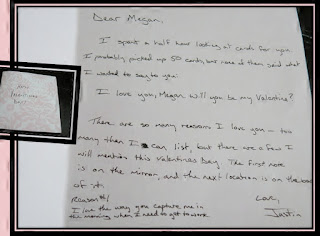 Dear Megan,
I spent a half hour looking at cards for you.
I probably picked up 50 cards, but none of them said what
I wanted to say to you.
I love you, Megan. Will you be my Valentine?
There are so many reasons I love you – too
many than I can list, but there are a few I
will mention this Valentines Day. The first note
is on the mirror, and the next location is on the back
of it.
Reason #1
I love the way you capture me in
the morning when I need to get to work.
Love,
Justin